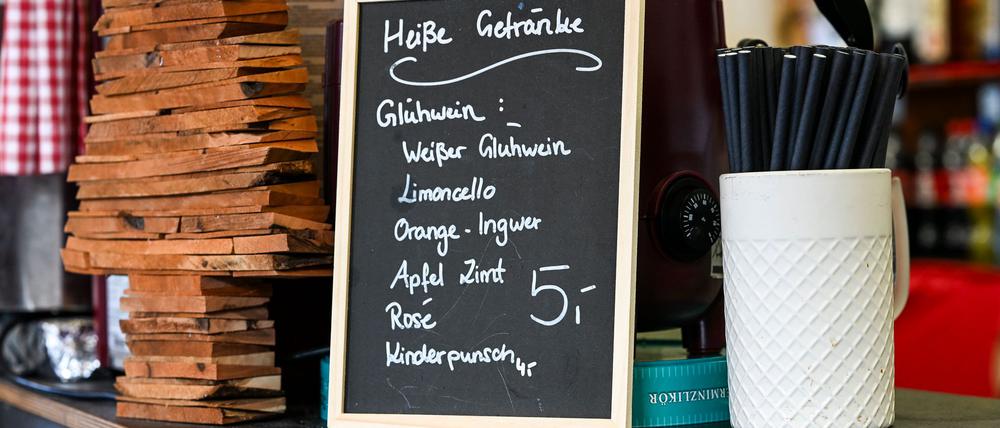 Heiße Getränke
Glühwein :
Weißer Glühwein
Limoncello
Orange - Ingwer
Apfel Zimt
5,-
Rosé
Kinderpunsch 4,-
ERMINZLIKÖR